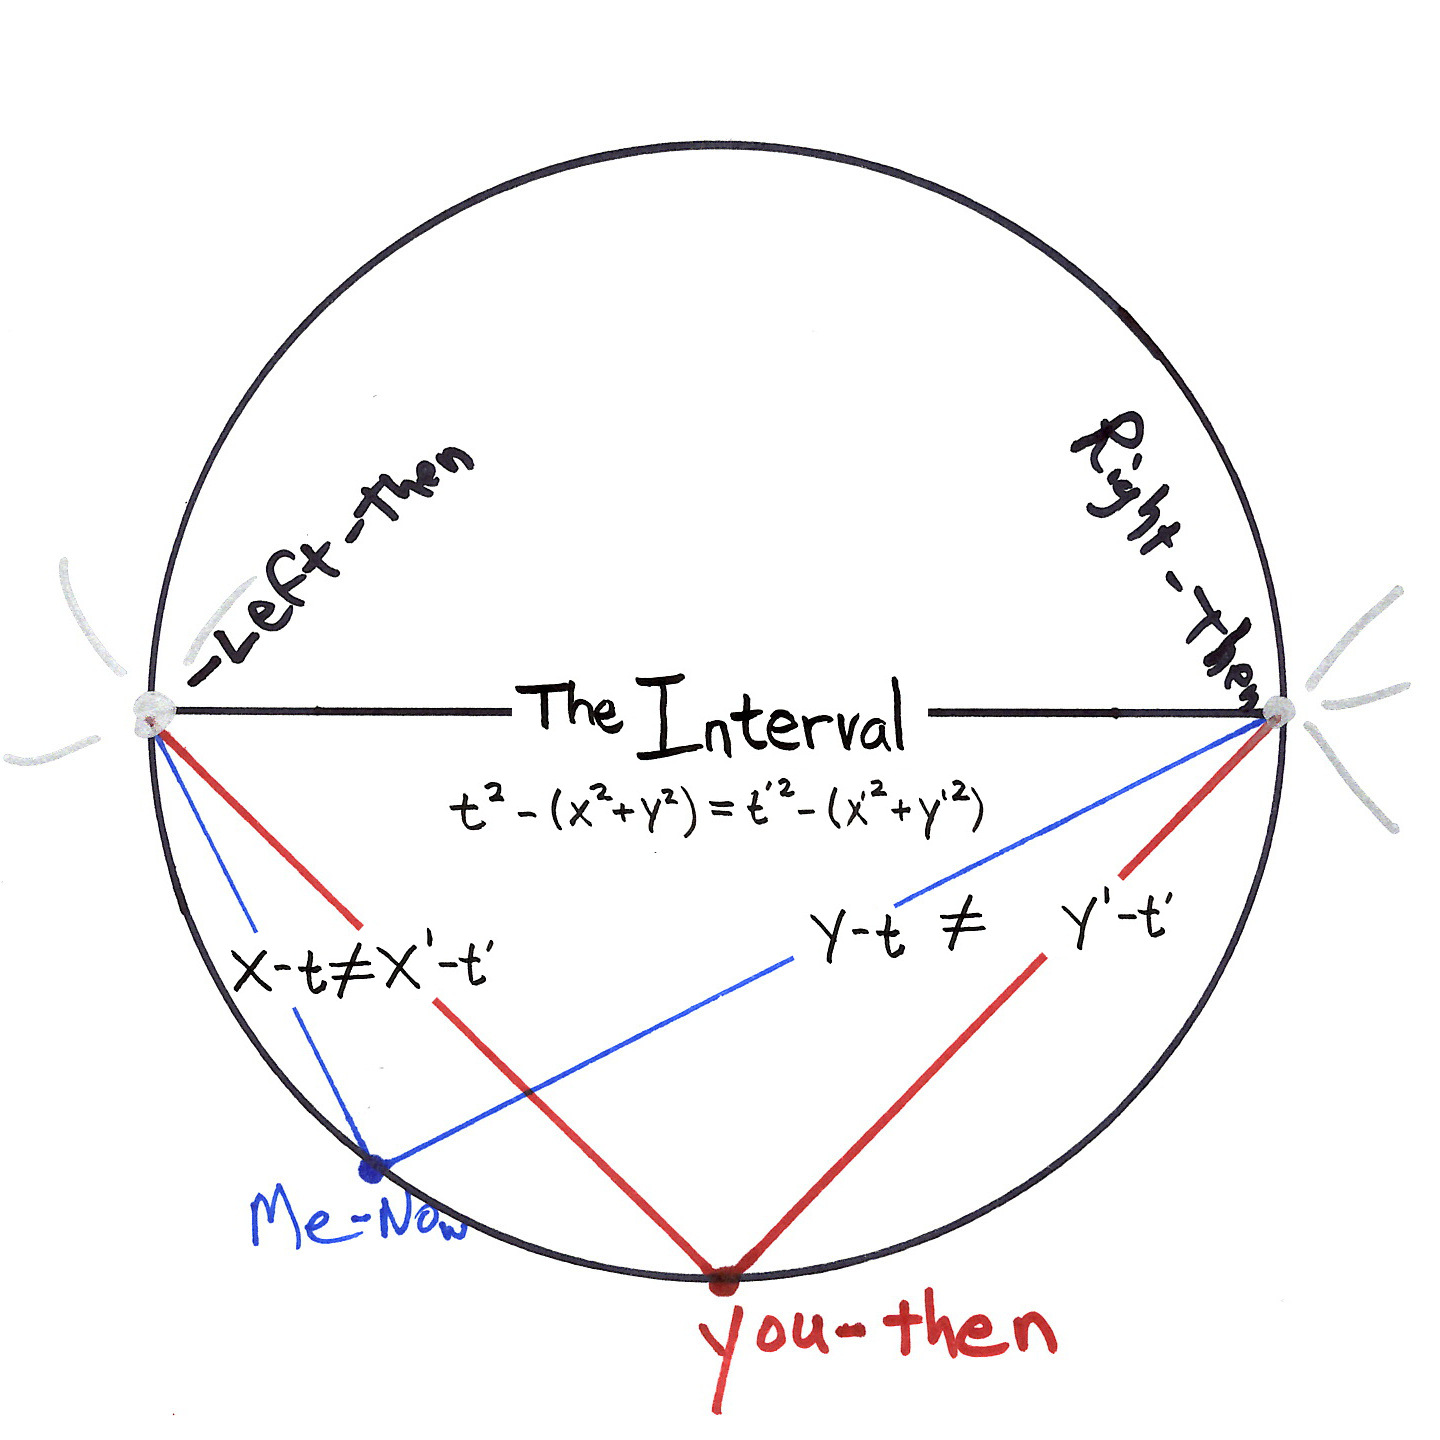 -Left-then
Right-then
The Interval
t²-(x²+y²)=t'²-(x'²+y'²)
y-t ≠ y'-t'
x-t≠x'-t'
Me-Now
you-then